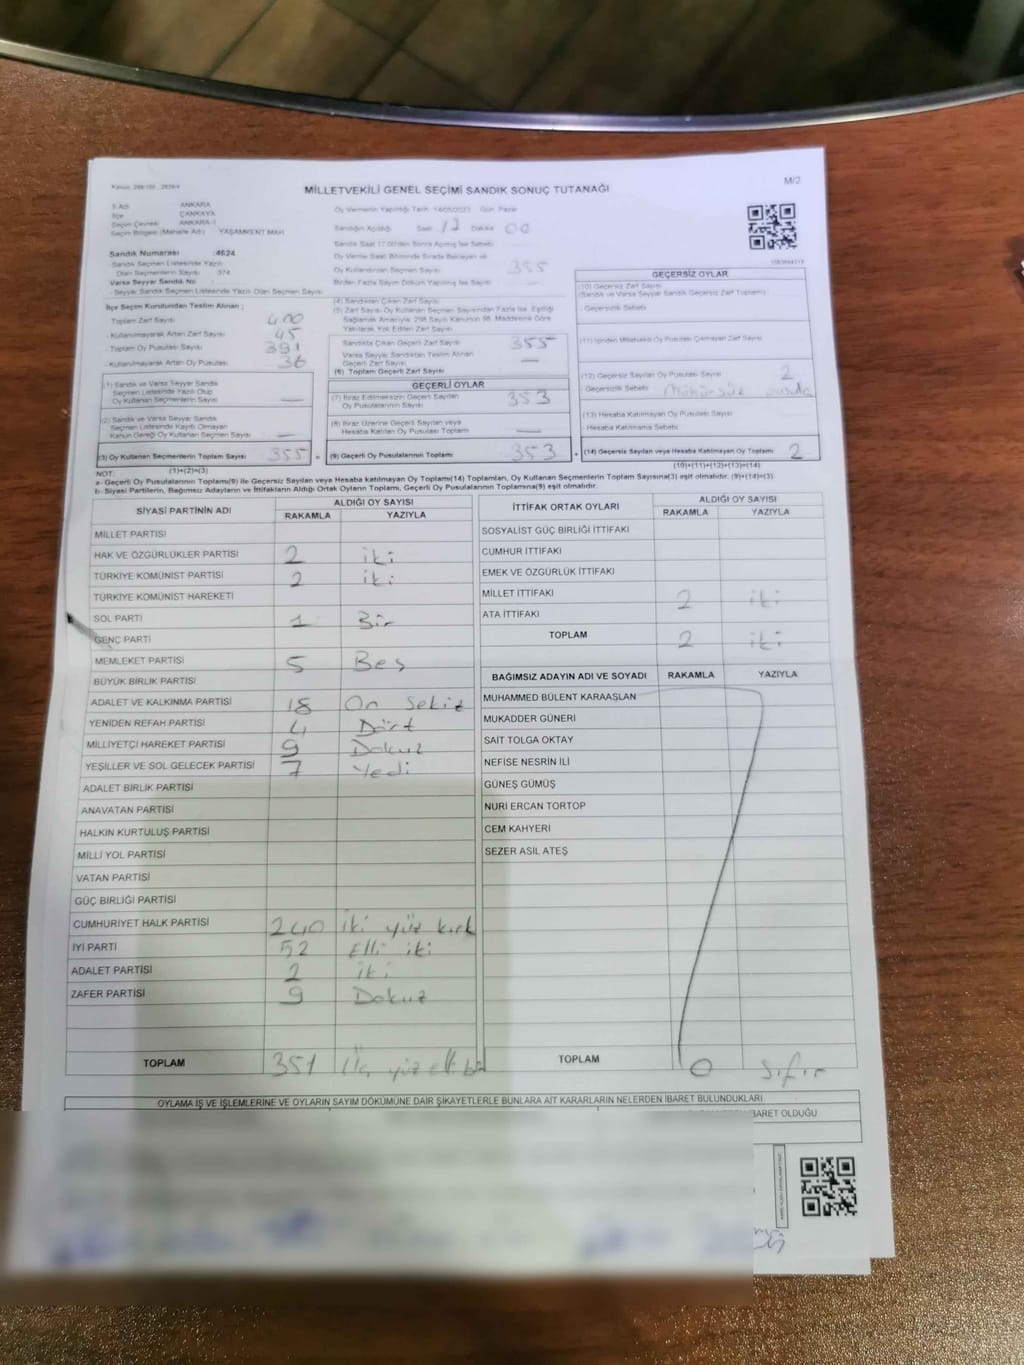 Kanun: 298/105 , 2839/4
M/2
MİLLETVEKİLİ GENEL SEÇİMİ SANDIK SONUÇ TUTANAĞI
İl Adı ANKARA
İlçe ÇANKAYA
Seçim Çevresi ANKARA-1
Seçim Bölgesi (Mahalle Adı) YAŞAMKENT MAH
Sandık Numarası :4624
Sandık Seçmen Listesinde Yazılı
Olan Seçmenlerin Sayısı 374
Varsa Seyyar Sandık No
Seyyar Sandık Seçmen Listesinde Yazılı Olan Seçmen Sayısı
Oy Vermenin Yapıldığı Tarih 14/05/2023 Gün Pazar
Sandığın Açıldığı Saat 17 Dakika 00
Sandık Saat 17.00'den Sonra Açılmış İse Sebebi
Oy Verme Saati Bitiminde Sırada Bekleyen ve
Oy Kullandırılan Seçmen Sayısı 355
Birden Fazla Sayım Döküm Yapılmış İse Sayısı
İlçe Seçim Kurulundan Teslim Alınan ;
Toplam Zarf Sayısı 400
- Kullanılmayarak Artan Zarf Sayısı 45
- Toplam Oy Pusulası Sayısı 391
- Kullanılmayarak Artan Oy Pusulası 36
(1) Sandık ve Varsa Seyyar Sandık
Seçmen Listesinde Yazılı Olup
Oy Kullanan Seçmen Sayısı —
(2) Sandık ve Varsa Seyyar Sandık
Seçmen Listesinde Kayıtlı Olmayan
Kanun Gereği Oy Kullanan Seçmen Sayısı —
(3) Oy Kullanan Seçmenlerin Toplam Sayısı 355 =
(1)+(2)=(3)
(4) Sandıktan Çıkan Zarf Sayısı
(5) Zarf Sayısı Oy Kullanan Seçmen Sayısından Fazla İse, Eşitliği
Sağlamak Amacıyla, 298 Sayılı Kanunun 98. Maddesine Göre
Yakılarak Yok Edilen Zarf Sayısı
Sandıkta Çıkan Geçerli Zarf Sayısı 355
Varsa Seyyar Sandıktan Teslim Alınan
Geçerli Zarf Sayısı —
(6) Toplam Geçerli Zarf Sayısı
GEÇERLİ OYLAR
(7) İtiraz Edilmeksizin Geçerli Sayılan
Oy Pusulalarının Sayısı 353
(8) İtiraz Üzerine Geçerli Sayılan veya
Hesaba Katılan Oy Pusulası Toplamı —
(9) Geçerli Oy Pusulalarının Toplamı 353 +
GEÇERSİZ OYLAR
(10) Geçersiz Zarf Sayısı
(Sandık ve Varsa Seyyar Sandık Geçersiz Zarf Toplamı)
- Geçersizlik Sebebi
(11) İçinden Milletvekili Oy Pusulası Çıkmayan Zarf Sayısı
(12) Geçersiz Sayılan Oy Pusulası Sayısı 2
Geçersizlik Sebebi Mühürsüz pusula
(13) Hesaba Katılmayan Oy Pusulası Sayısı
- Hesaba Katılmama Sebebi
(14) Geçersiz Sayılan veya Hesaba Katılmayan Oy Toplamı 2
(10)+(11)+(12)+(13)=(14)
NOT:
a- Geçerli Oy Pusulaları Toplamı(9) ile Geçersiz Sayılan veya Hesaba katılmayan Oy Toplamı(14) Toplamları, Oy Kullanan Seçmenlerin Toplam Sayısına(3) eşit olmalıdır. (9)+(14)=(3)
b- Siyasi Partilerin, Bağımsız Adayların ve İttifakların Aldığı Ortak Oyların Toplamı, Geçerli Oy Pusulalarının Toplamına(9) eşit olmalıdır.
SİYASİ PARTİNİN ADI ALDIĞI OY SAYISI
RAKAMLA YAZIYLA
MİLLET PARTİSİ
HAK VE ÖZGÜRLÜKLER PARTİSİ 2 iki
TÜRKİYE KOMÜNİST PARTİSİ 2 iki
TÜRKİYE KOMÜNİST HAREKETİ
SOL PARTİ 1 Bir
GENÇ PARTİ
MEMLEKET PARTİSİ 5 Beş
BÜYÜK BİRLİK PARTİSİ
ADALET VE KALKINMA PARTİSİ 18 On Sekiz
YENİDEN REFAH PARTİSİ 4 Dört
MİLLİYETÇİ HAREKET PARTİSİ 9 Dokuz
YEŞİLLER VE SOL GELECEK PARTİSİ 7 Yedi
ADALET BİRLİK PARTİSİ
ANAVATAN PARTİSİ
HALKIN KURTULUŞ PARTİSİ
MİLLİ YOL PARTİSİ
VATAN PARTİSİ
GÜÇ BİRLİĞİ PARTİSİ
CUMHURİYET HALK PARTİSİ 240 iki yüz kırk
İYİ PARTİ 52 Elli iki
ADALET PARTİSİ 2 iki
ZAFER PARTİSİ 9 Dokuz
TOPLAM 351 Üç yüz elli bir
İTTİFAK ORTAK OYLARI ALDIĞI OY SAYISI
RAKAMLA YAZIYLA
SOSYALİST GÜÇ BİRLİĞİ İTTİFAKI
CUMHUR İTTİFAKI
EMEK VE ÖZGÜRLÜK İTTİFAKI
MİLLET İTTİFAKI 2 iki
ATA İTTİFAKI
TOPLAM 2 iki
BAĞIMSIZ ADAYIN ADI VE SOYADI RAKAMLA YAZIYLA
MUHAMMED BÜLENT KARAASLAN
MUKADDER GÜNERİ
SAİT TOLGA OKTAY
NEFİSE NESRİN İLİ
GÜNEŞ GÜMÜŞ
NURİ ERCAN TORTOP
CEM KAHYERİ
SEZER ASIL ATEŞ
TOPLAM 0 Sıfır
OYLAMA İŞ VE İŞLEMLERİNE VE OYLARIN SAYIM DÖKÜMÜNE DAİR ŞİKAYETLERLE BUNLARA AİT KARARLARIN NELERDEN İBARET BULUNDUKLARI
BARET OLDUĞU